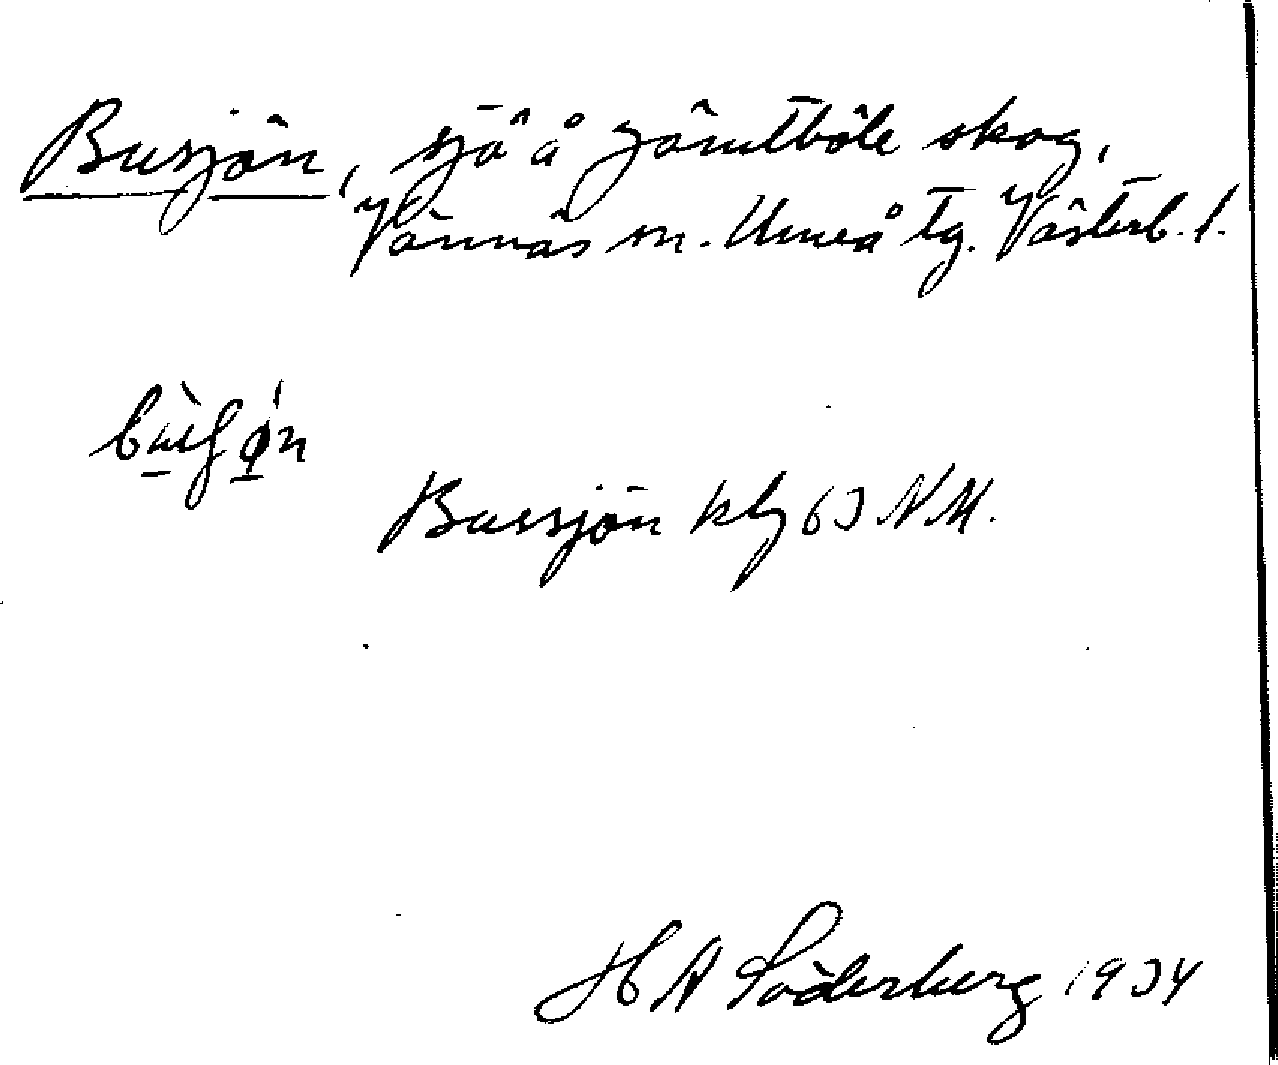 Busjön, sjö å Jämtböle skog,
Vännäs sn. Umeå tg. Västerb. l.
Bussjön kbl 63 NM.
H A Söderberg 1934